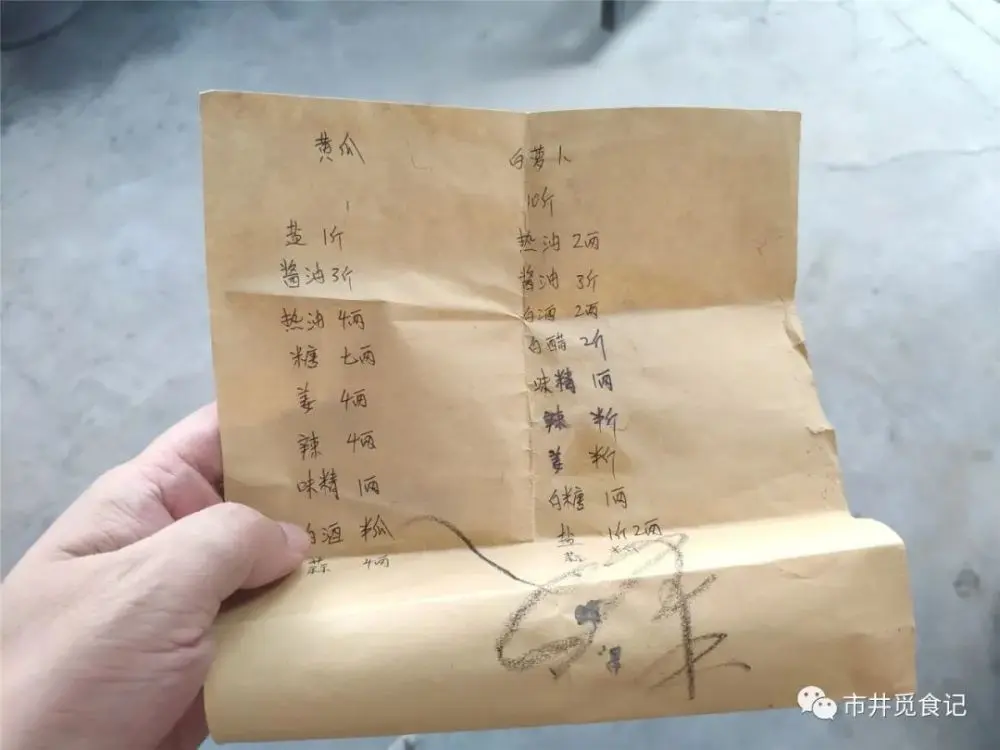 黄瓜
盐 1斤
酱油 3斤
热油 4两
糖 七两
姜 4两
辣 4两
味精 1两
白酒 半瓜
蒜 4两
白萝卜
10斤
热油 2两
酱油 3斤
白酒 2两
白醋 2斤
味精 1两
辣 半斤
姜 半斤
白糖 1两
盐 1斤2两
蒜
市井觅食记